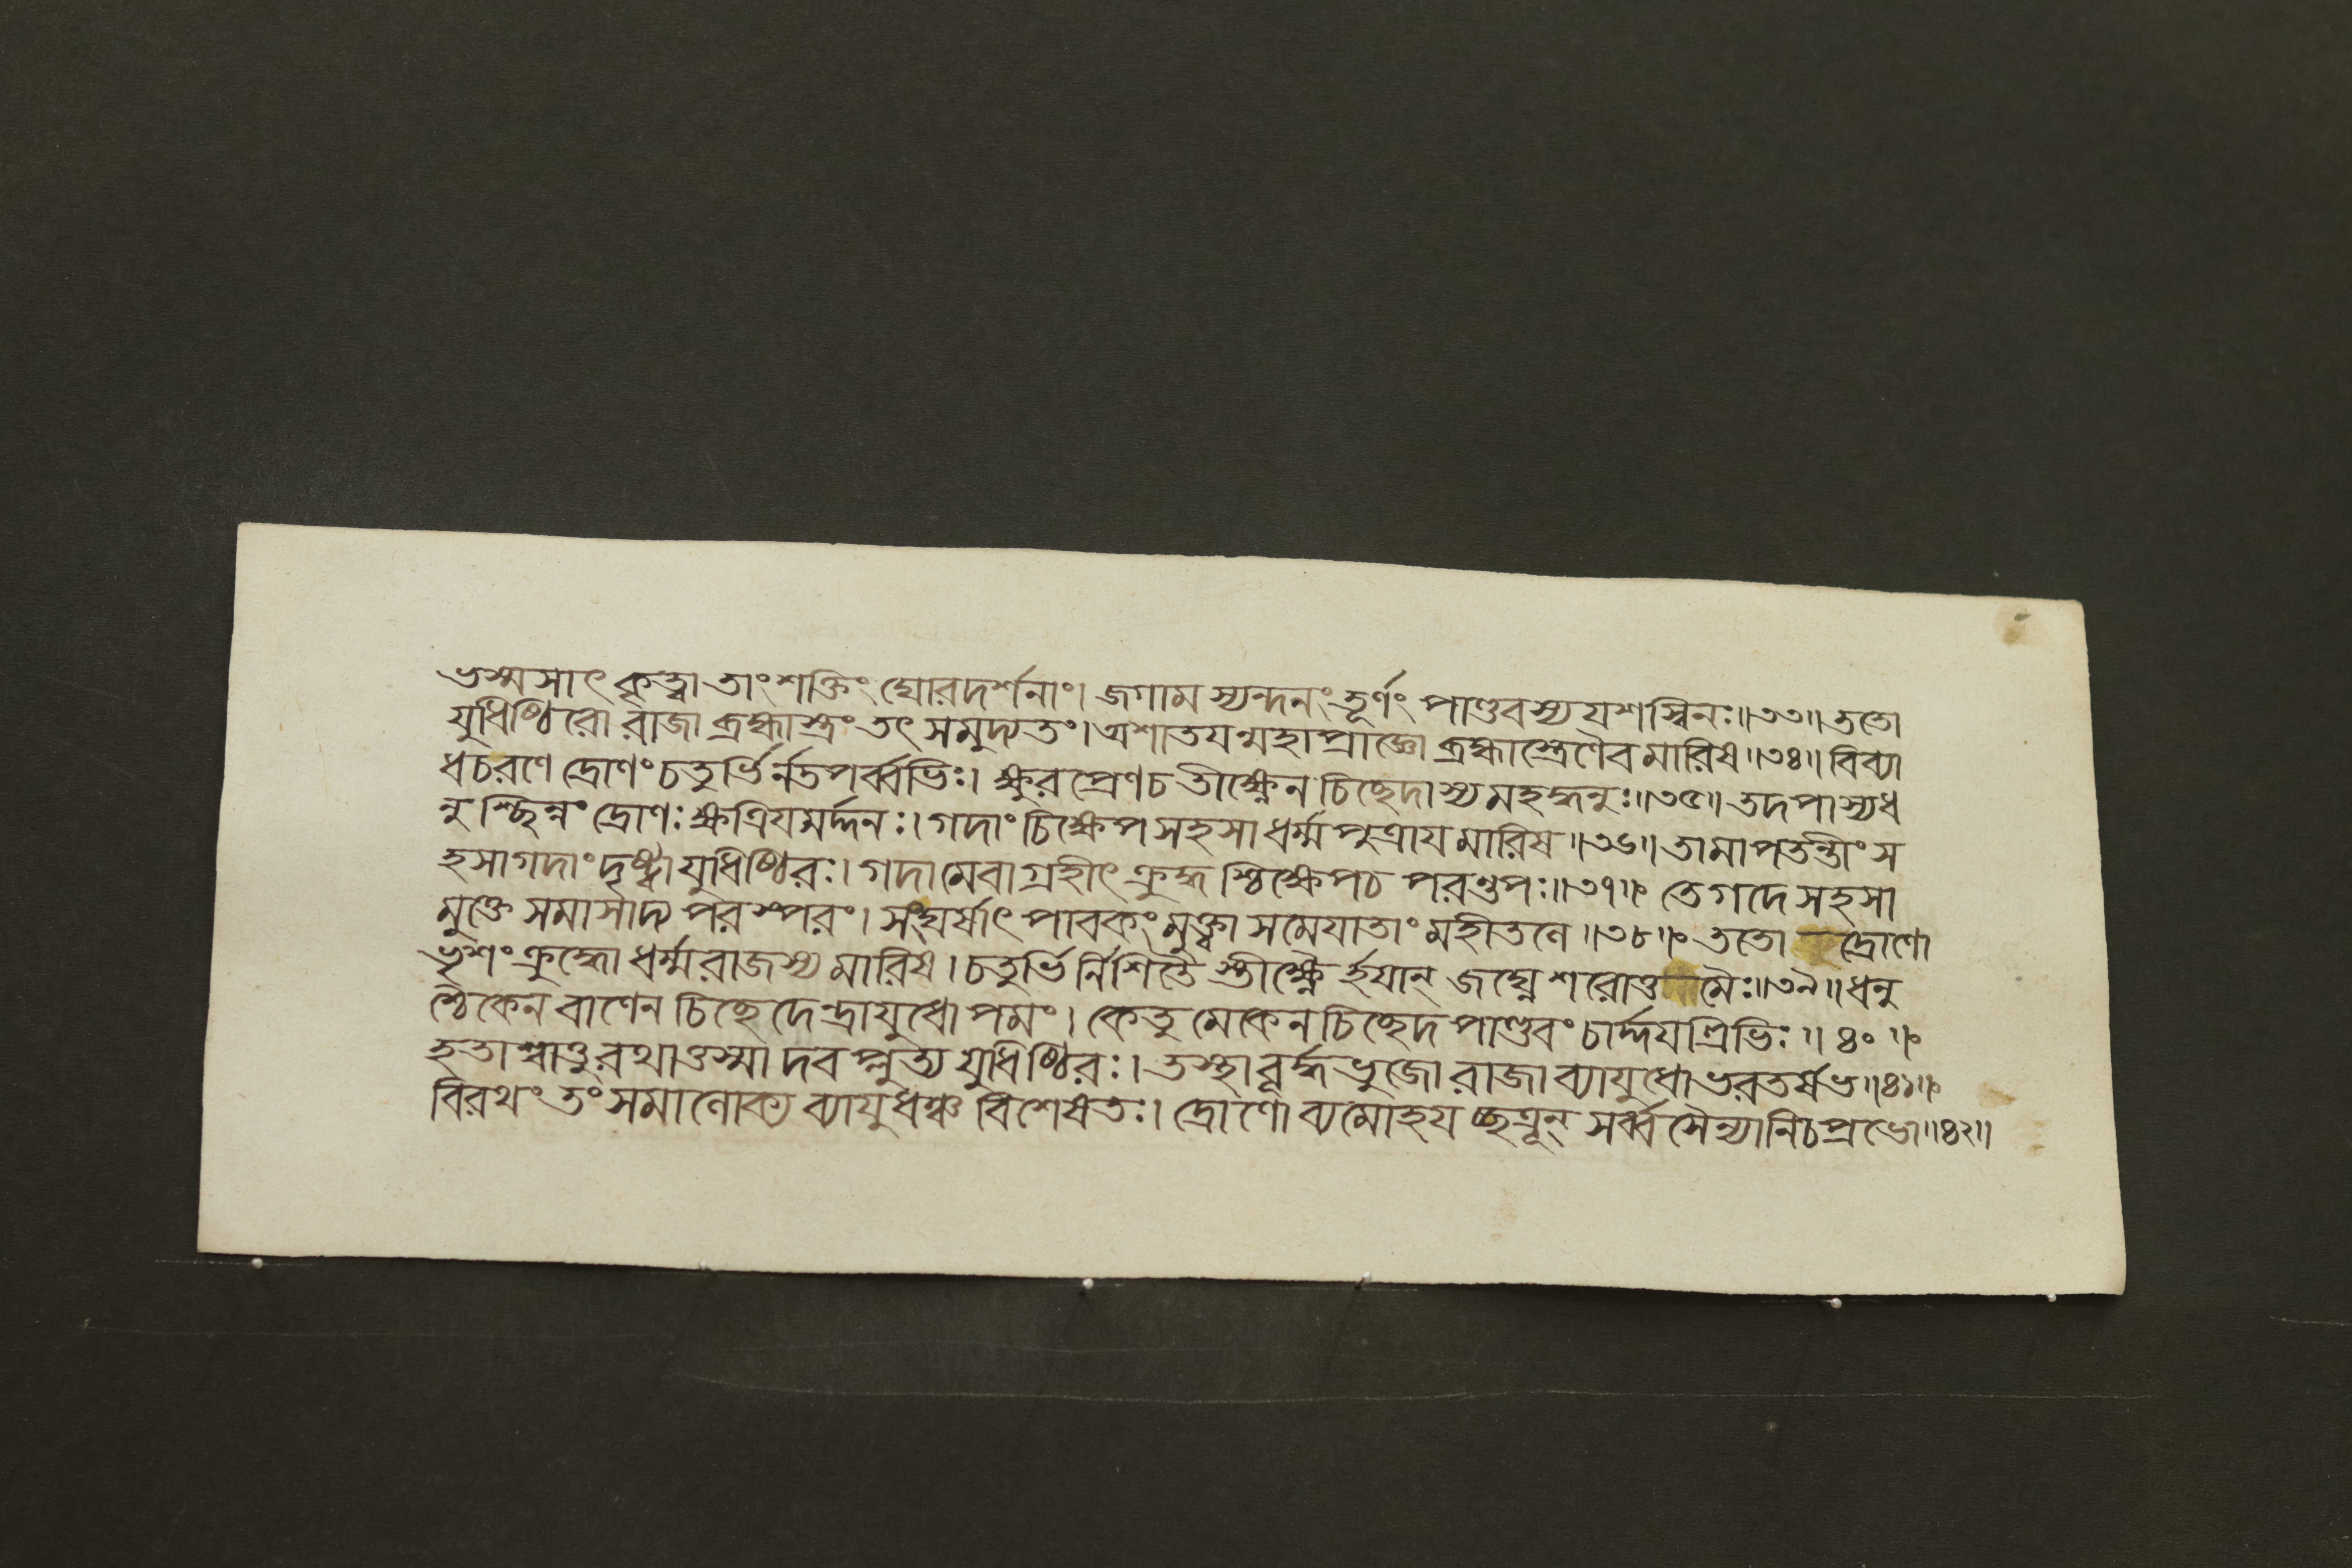 ভস্মসাৎ কৃত্বা তাং শক্তিং ঘোরদর্শনাং। জগাম স্যন্দনং তূর্ণং পাণ্ডবস্য যশস্বিনঃ॥৩৩॥ ততো
যুধিষ্ঠিরো রাজা ব্রহ্মাস্ত্রং তৎ সমুদ্যতং। অশাতযন্মহাপ্রাজ্ঞো ব্রহ্মাস্ত্রেণৈব মারিষ॥৩৪॥ বিব্যা
ধ চ রণে দ্রোণং চতুর্ভির্ন্নতপর্ব্বভিঃ। ক্ষুরপ্রেণ চ তীক্ষ্ণেন চিচ্ছেদাস্য মহদ্ধনুঃ॥৩৫॥ তদপাস্য ধ
নুশ্ছিন্নং দ্রোণঃ ক্ষত্রিযমর্দ্দনঃ। গদাং চিক্ষেপ সহসা ধর্ম্মপুত্রায মারিষ॥৩৬॥ তামাপতন্তীং স
হসা গদাং দৃষ্ট্বা যুধিষ্ঠিরঃ। গদামেবাগ্রহীৎ ক্রুদ্ধশ্চিক্ষেপ চ পরন্তপঃ॥৩৭॥ তে গদে সহসা
মুক্তে সমাসাদ্য পরস্পরং। সংঘর্ষাৎ পাবকং মুক্ত্বা সমেযাতাং মহীতলে॥৩৮॥ ততো দ্রোণো
ভৃশং ক্রুদ্ধো ধর্ম্মরাজস্য মারিষ। চতুর্ভির্ন্নিশিতৈস্তীক্ষ্ণৈর্হযান্ জঘ্নে শরোত্তমৈঃ॥৩৯॥ ধনু
শ্চৈকেন বাণেন চিচ্ছেদেন্দ্রাযুধোপমং। কেতুমেকেন চিচ্ছেদ পাণ্ডবং চার্দ্দযত্রিভিঃ॥৪০॥
হতাশ্বাত্তু রথাত্তস্মাদবপ্লুত্য যুধিষ্ঠিরঃ। তস্থাবূর্দ্ধভুজো রাজা ব্যাযুধো ভরতর্ষভ॥৪১॥
বিরথং তং সমালোক্য ব্যাযুধঞ্চ বিশেষতঃ। দ্রোণো ব্যমোহযচ্ছত্রূন্ সর্ব্বসৈন্যানি চ প্রভো॥৪২॥